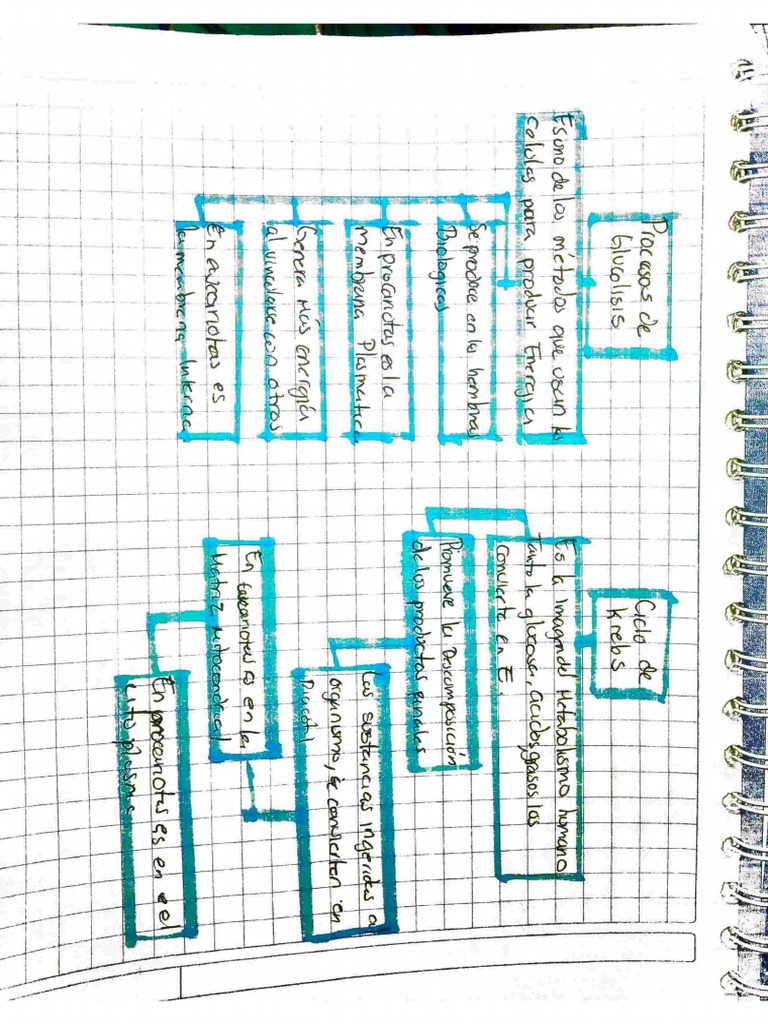 Procesos de
Glucolisis
Es uno de los métodos que usan la
celulas para producir Energia
Se produce en la membranas
Biologicas
En procariotas es la
membrana Plasmatica
Genera más energia
al vincularse con otros
En eucariotas es
la membrana interna
Ciclo de
Krebs
Es la imagen del Metabolismo humano
Tanto la glucosa, acidos grasos las
convierte en E.
Promueve la Descomposición
de los productos finales
Las sustancias ingeridas al
organismo, se convierten en
En eucariotas es en la
Matriz mitocondrial
En procariotas es en e el
citoplasma